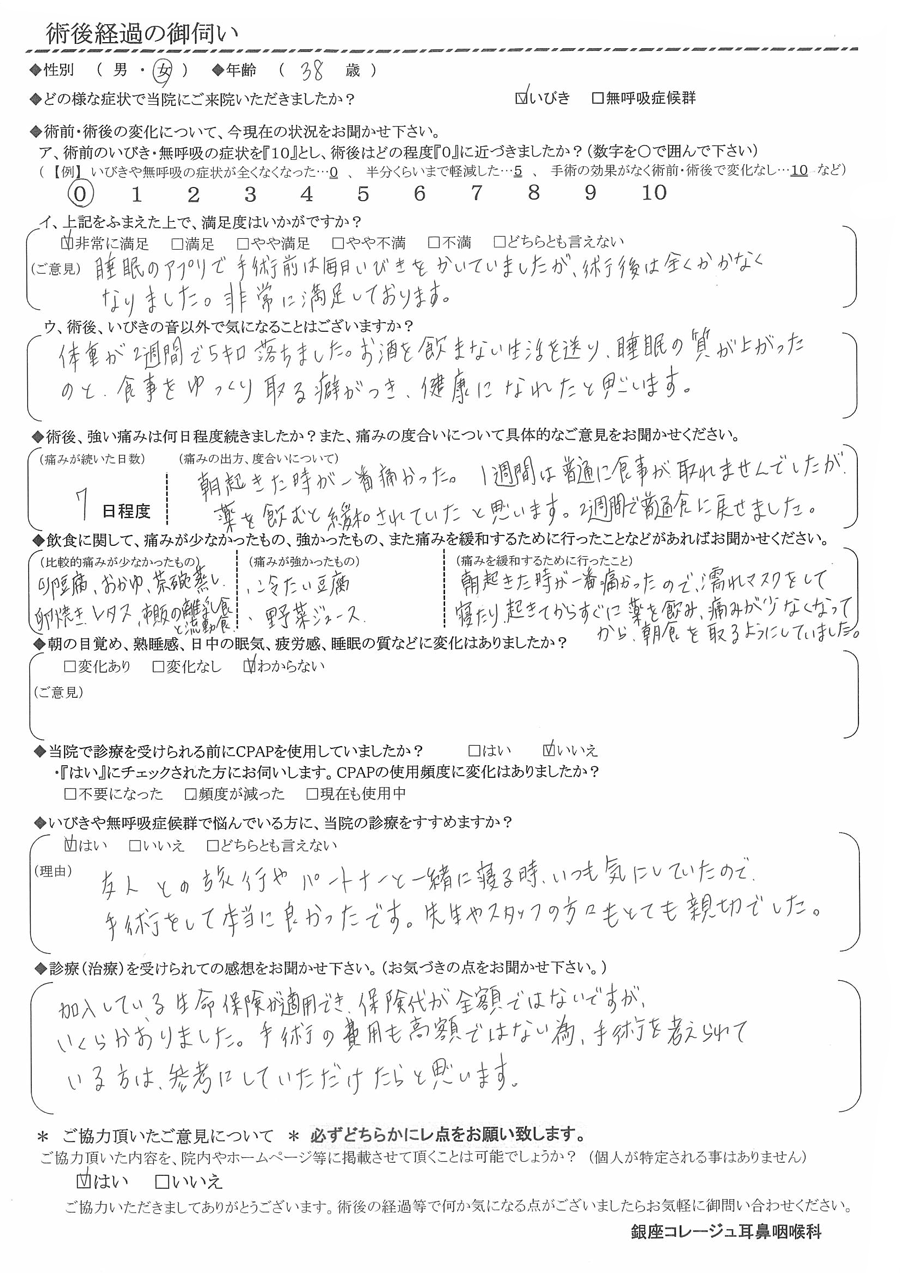 術後経過の御伺い
◆性別 ( 男 ・ 女 ) ◆年齢 ( 38 歳 )
◆どの様な症状で当院にご来院いただきましたか? ☑いびき □無呼吸症候群
◆術前・術後の変化について、今現在の状況をお聞かせ下さい。
ア、術前のいびき・無呼吸の症状を『10』とし、術後はどの程度『0』に近づきましたか?(数字を○で囲んで下さい)
(【例】 いびきや無呼吸の症状が全くなくなった…0 、 半分くらいまで軽減した…5 、 手術の効果がなく術前・術後で変化なし…10 など)
0 1 2 3 4 5 6 7 8 9 10
イ、上記をふまえた上で、満足度はいかがですか?
☑非常に満足 □満足 □やや満足 □やや不満 □不満 □どちらとも言えない
(ご意見) 睡眠のアプリで手術前は毎日いびきをかいていましたが、術後は全くかかなく
なりました。非常に満足しております。
ウ、術後、いびきの音以外で気になることはございますか?
体重が2週間で5キロ落ちました。お酒を飲まない生活を送り、睡眠の質が上がった
のと、食事をゆっくり取る癖がつき、健康になれたと思います。
◆術後、強い痛みは何日程度続きましたか?また、痛みの度合いについて具体的なご意見をお聞かせください。
(痛みが続いた日数) (痛みの出方、度合いについて)
朝起きた時が一番痛かった。1週間は普通に食事が取れませんでしたが、
7 日程度 薬を飲むと緩和されていたと思います。2週間で普通食に戻せました。
◆飲食に関して、痛みが少なかったもの、強かったもの、また痛みを緩和するために行ったことなどがあればお聞かせください。
(比較的痛みが少なかったもの) (痛みが強かったもの) (痛みを緩和するために行ったこと)
卵豆腐、おかゆ、茶碗蒸し、 ・冷たい豆腐 朝起きた時が一番痛かったので、濡れマスクをして
卵焼き、レタス、市販の離乳食 ・野菜ジュース 寝たり、起きてからすぐに薬を飲み、痛みが少なくなって
と流動食 から、朝食を取るようにしていました。
◆朝の目覚め、熟睡感、日中の眠気、疲労感、睡眠の質などに変化はありましたか?
□変化あり □変化なし ☑わからない
(ご意見)
◆当院で診療を受けられる前にCPAPを使用していましたか? □はい ☑いいえ
・『はい』にチェックされた方にお伺いします。CPAPの使用頻度に変化はありましたか?
□不要になった □頻度が減った □現在も使用中
◆いびきや無呼吸症候群で悩んでいる方に、当院の診療をすすめますか?
☑はい □いいえ □どちらとも言えない
(理由) 友人との旅行やパートナーと一緒に寝る時、いつも気にしていたので、
手術をして本当に良かったです。先生やスタッフの方々もとても親切でした。
◆診療(治療)を受けられての感想をお聞かせ下さい。(お気づきの点をお聞かせ下さい。)
加入している生命保険が適用でき、保険代が全額ではないですが、
いくらかおりました。手術の費用も高額ではない為、手術を考えられて
いる方は、参考にしていただけたらと思います。
* ご協力頂いたご意見について * 必ずどちらかにレ点をお願い致します。
ご協力頂いた内容を、院内やホームページ等に掲載させて頂くことは可能でしょうか? (個人が特定される事はありません)
☑はい □いいえ
ご協力いただきましてありがとうございます。術後の経過等で何か気になる点がございましたらお気軽に御問い合わせください。
銀座コレージュ耳鼻咽喉科